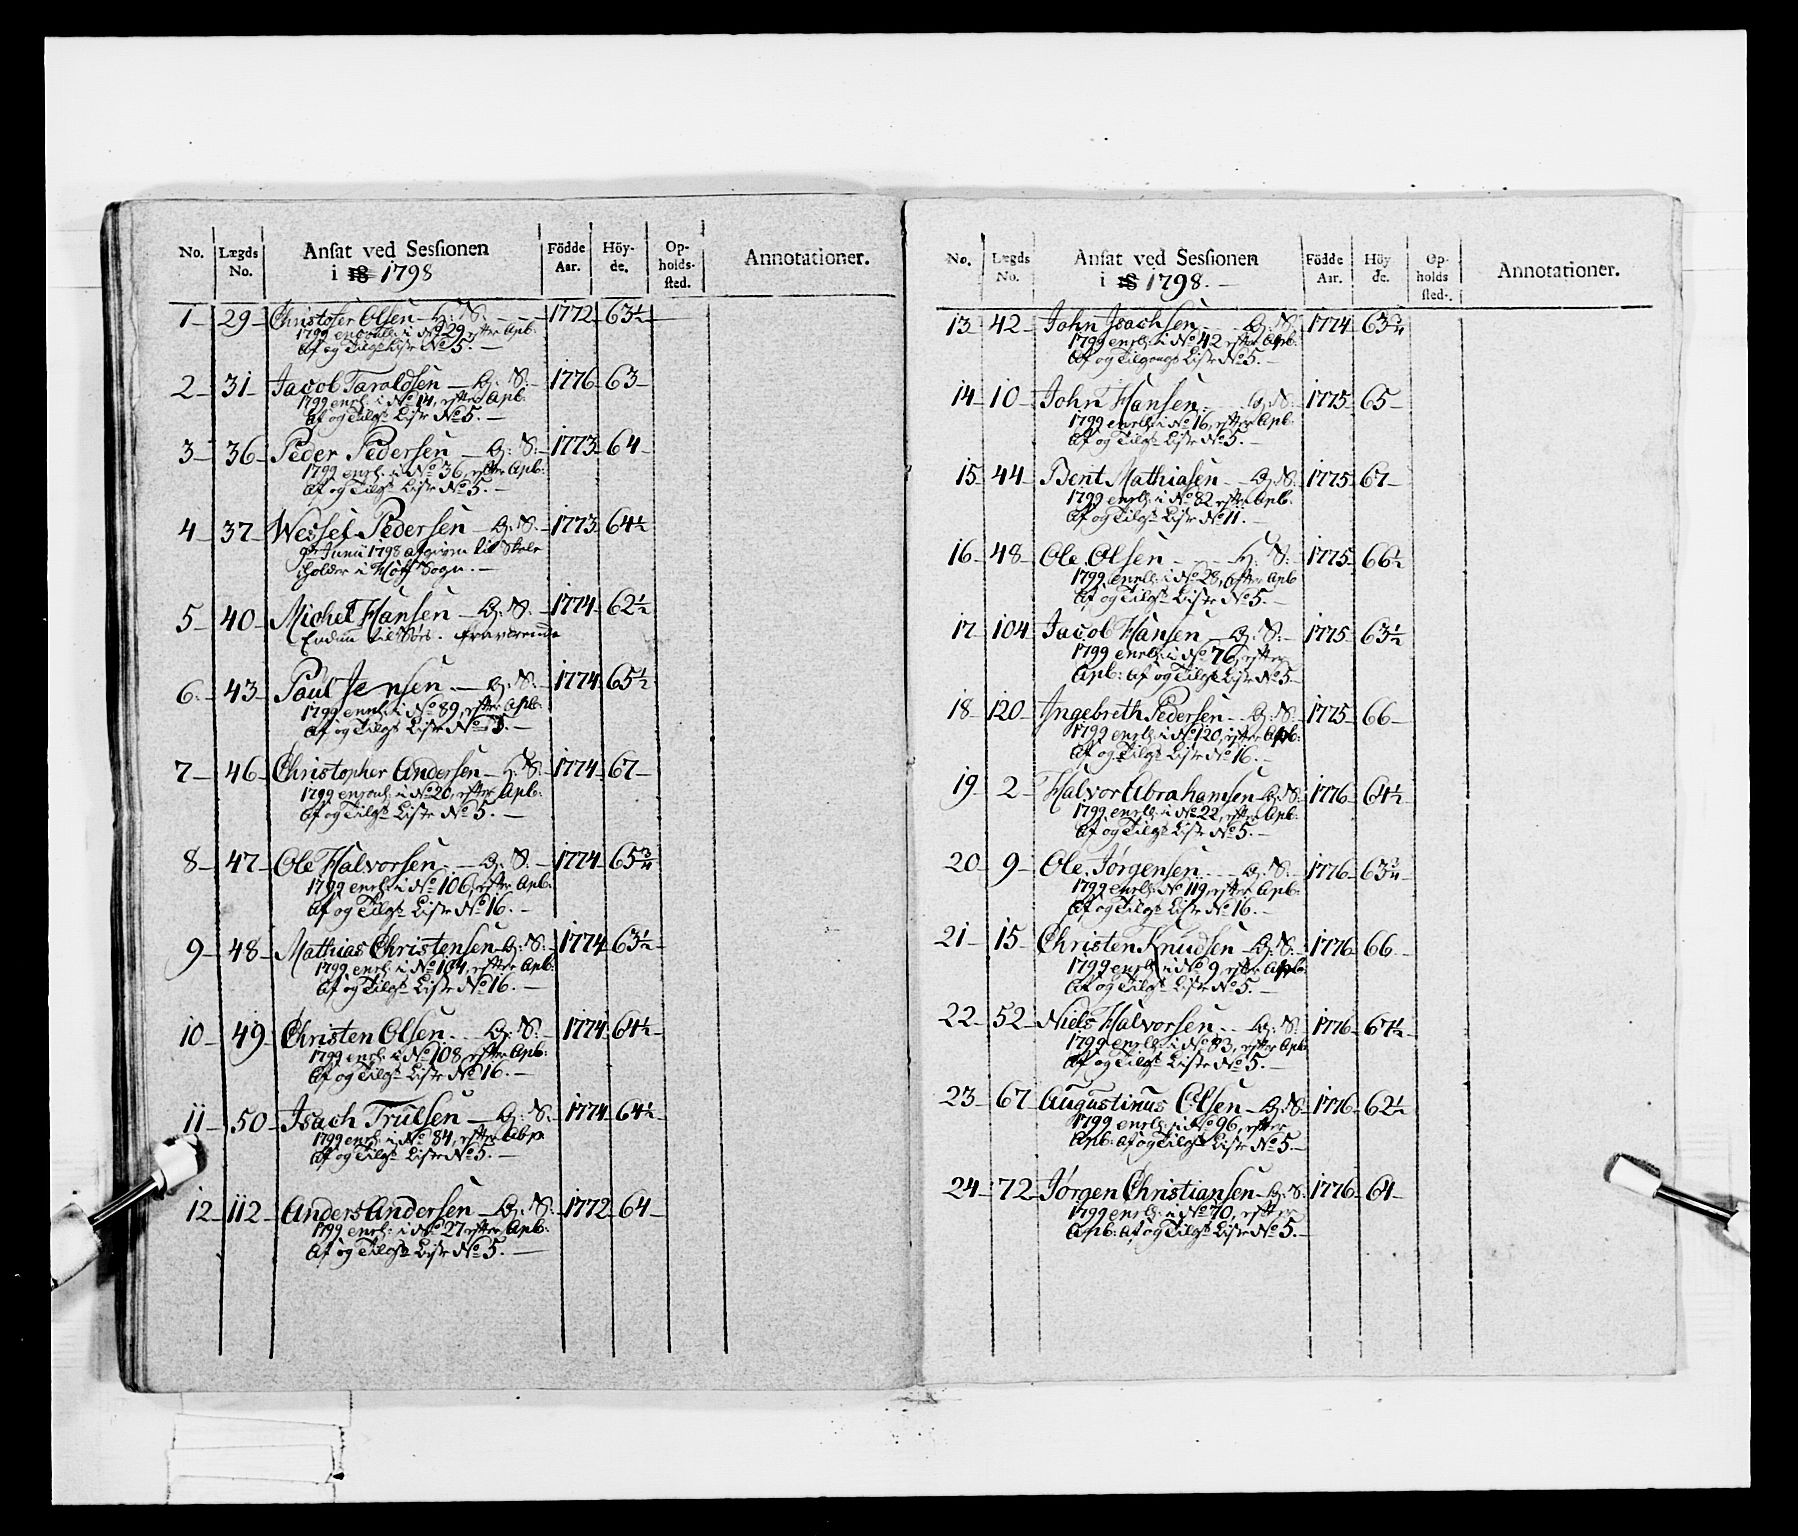 No. Lægds No. Ansat ved Sessionen i 18 1798 Födde Aar. Höy-de. Op-holds-sted. Annotationer.
1 29 Christofer Olsen H: S. 1772 63½
1799 enroull: i No 29 efter Apb:
Af og Tilgs Liste No 5.
2 31 Jacob Taraldsen G: S: 1776 63
1799 enrl: i No 14, efter Apb:
Af og Tilgs Liste No 5.
3 36 Peder Pedersen G: S: 1773 64
1799 enrl: i No 36, efter Apb:
Af og Tilgs Liste No 5.
4 37 Wessel Pedersen G: S. 1773 64½
9de Junii 1798 afgiven til Skole
holder i Hoff Sogn.
5 40 Michel Hansen G: S. 1774 62½
Endnu til Søes. fraværende
6. 43 Paul Jensen G: S. 1774 65½
1799 enrl: i No 89, efter Apb:
Af og Tilgs Liste No 5.
7 46 Christopher Andersen H: S. 1774 67
1799 enroul: i No 20, efter Apb:
Af og Tilgs Liste No 5.
8 47 Ole Halvorsen G: S. 1774 65¾
1799 enrl: i No 106, efter Apb:
Af og Tilgs Liste No 16.
9 48 Mathias Christensen G: S. 1774 63½
1799 enrl: i No 104, efter Apb:
Af og Tilgs Liste No 16.
10 49 Christen Olsen G: S. 1774 64½
1799 enrl: i No 108, efter Apb:
Af og Tilgs Liste No 16.
11 50 Isach Trulsen G: S. 1774 64½
1799 enrl: i No 84, efter Abp:
Af og Tilgs Liste No 5.
12 112 Anders Andersen G: S. 1772 64
1799 enrl: i No 27 efter Apb:
Af og Tilgs Liste No 5.
No. Lægds No. Ansat ved Sessionen i 18 1798. Födde Air. Höy de. Op-holds sted. Annotationer.
13 42 John Isachsen G: S. 1774 63¾
1799 enrl: i No 42 efter Apb:
Af og Tilgangs Liste No 5.
14 10 John Hansen G: S. 1775 65
1799 enrl: i No 16, efter Apb:
Af og Tilgs Liste No 5.
15 44 Bent Mathiasen G: S. 1775 67
1799 enrl: i No 82 efter Apb.
Af og Tilgs Liste No 11.
16 48 Ole Olsen H: S: 1775 66½
1799 enrl: i No 28, efter Apb
Af og Tilgs Liste No 5.
17 104 Jacob Hansen G: S: 1775 63½
1799 enrl: i No 76, efter
Apb: Af og Tilgs Liste No 5
18 120 Ingebreth Pedersen G: S: 1775 66
1799 enrl: i No 120, efter Apb:
Af og Tilgs Liste No 16.
19 2 Halvor Abrahamsen G: S: 1776 64½
1799 enrl: i No 22, efter Apb:
Af og Tilgs Liste No 5.
20 9 Ole Jørgensen G: S. 1776 63¾
1799 enrl: No 119, efter Apb:
Af og Tilgs Liste No 16.
21 15 Christen Knudsen G: S: 1776 66
1799 enrl: i No 9, efter Apb:
Af og Tilgs Liste No 5.
22 52 Niels Halvorsen G: S. 1776 67½
1799 enrl: i No 83, efter Apb
Af og Tilgs Liste No 5.
23 67 Augustinus Olsen G: S. 1776 62½
1799 enrl: i No 96, efter
Apb: Af og Tilgs Liste No 5.
24 72 Jørgen Christiansen G: S. 1776 64
1799 enrl: i No 70, efter
Apb: Af og Tilgs Liste No 5.